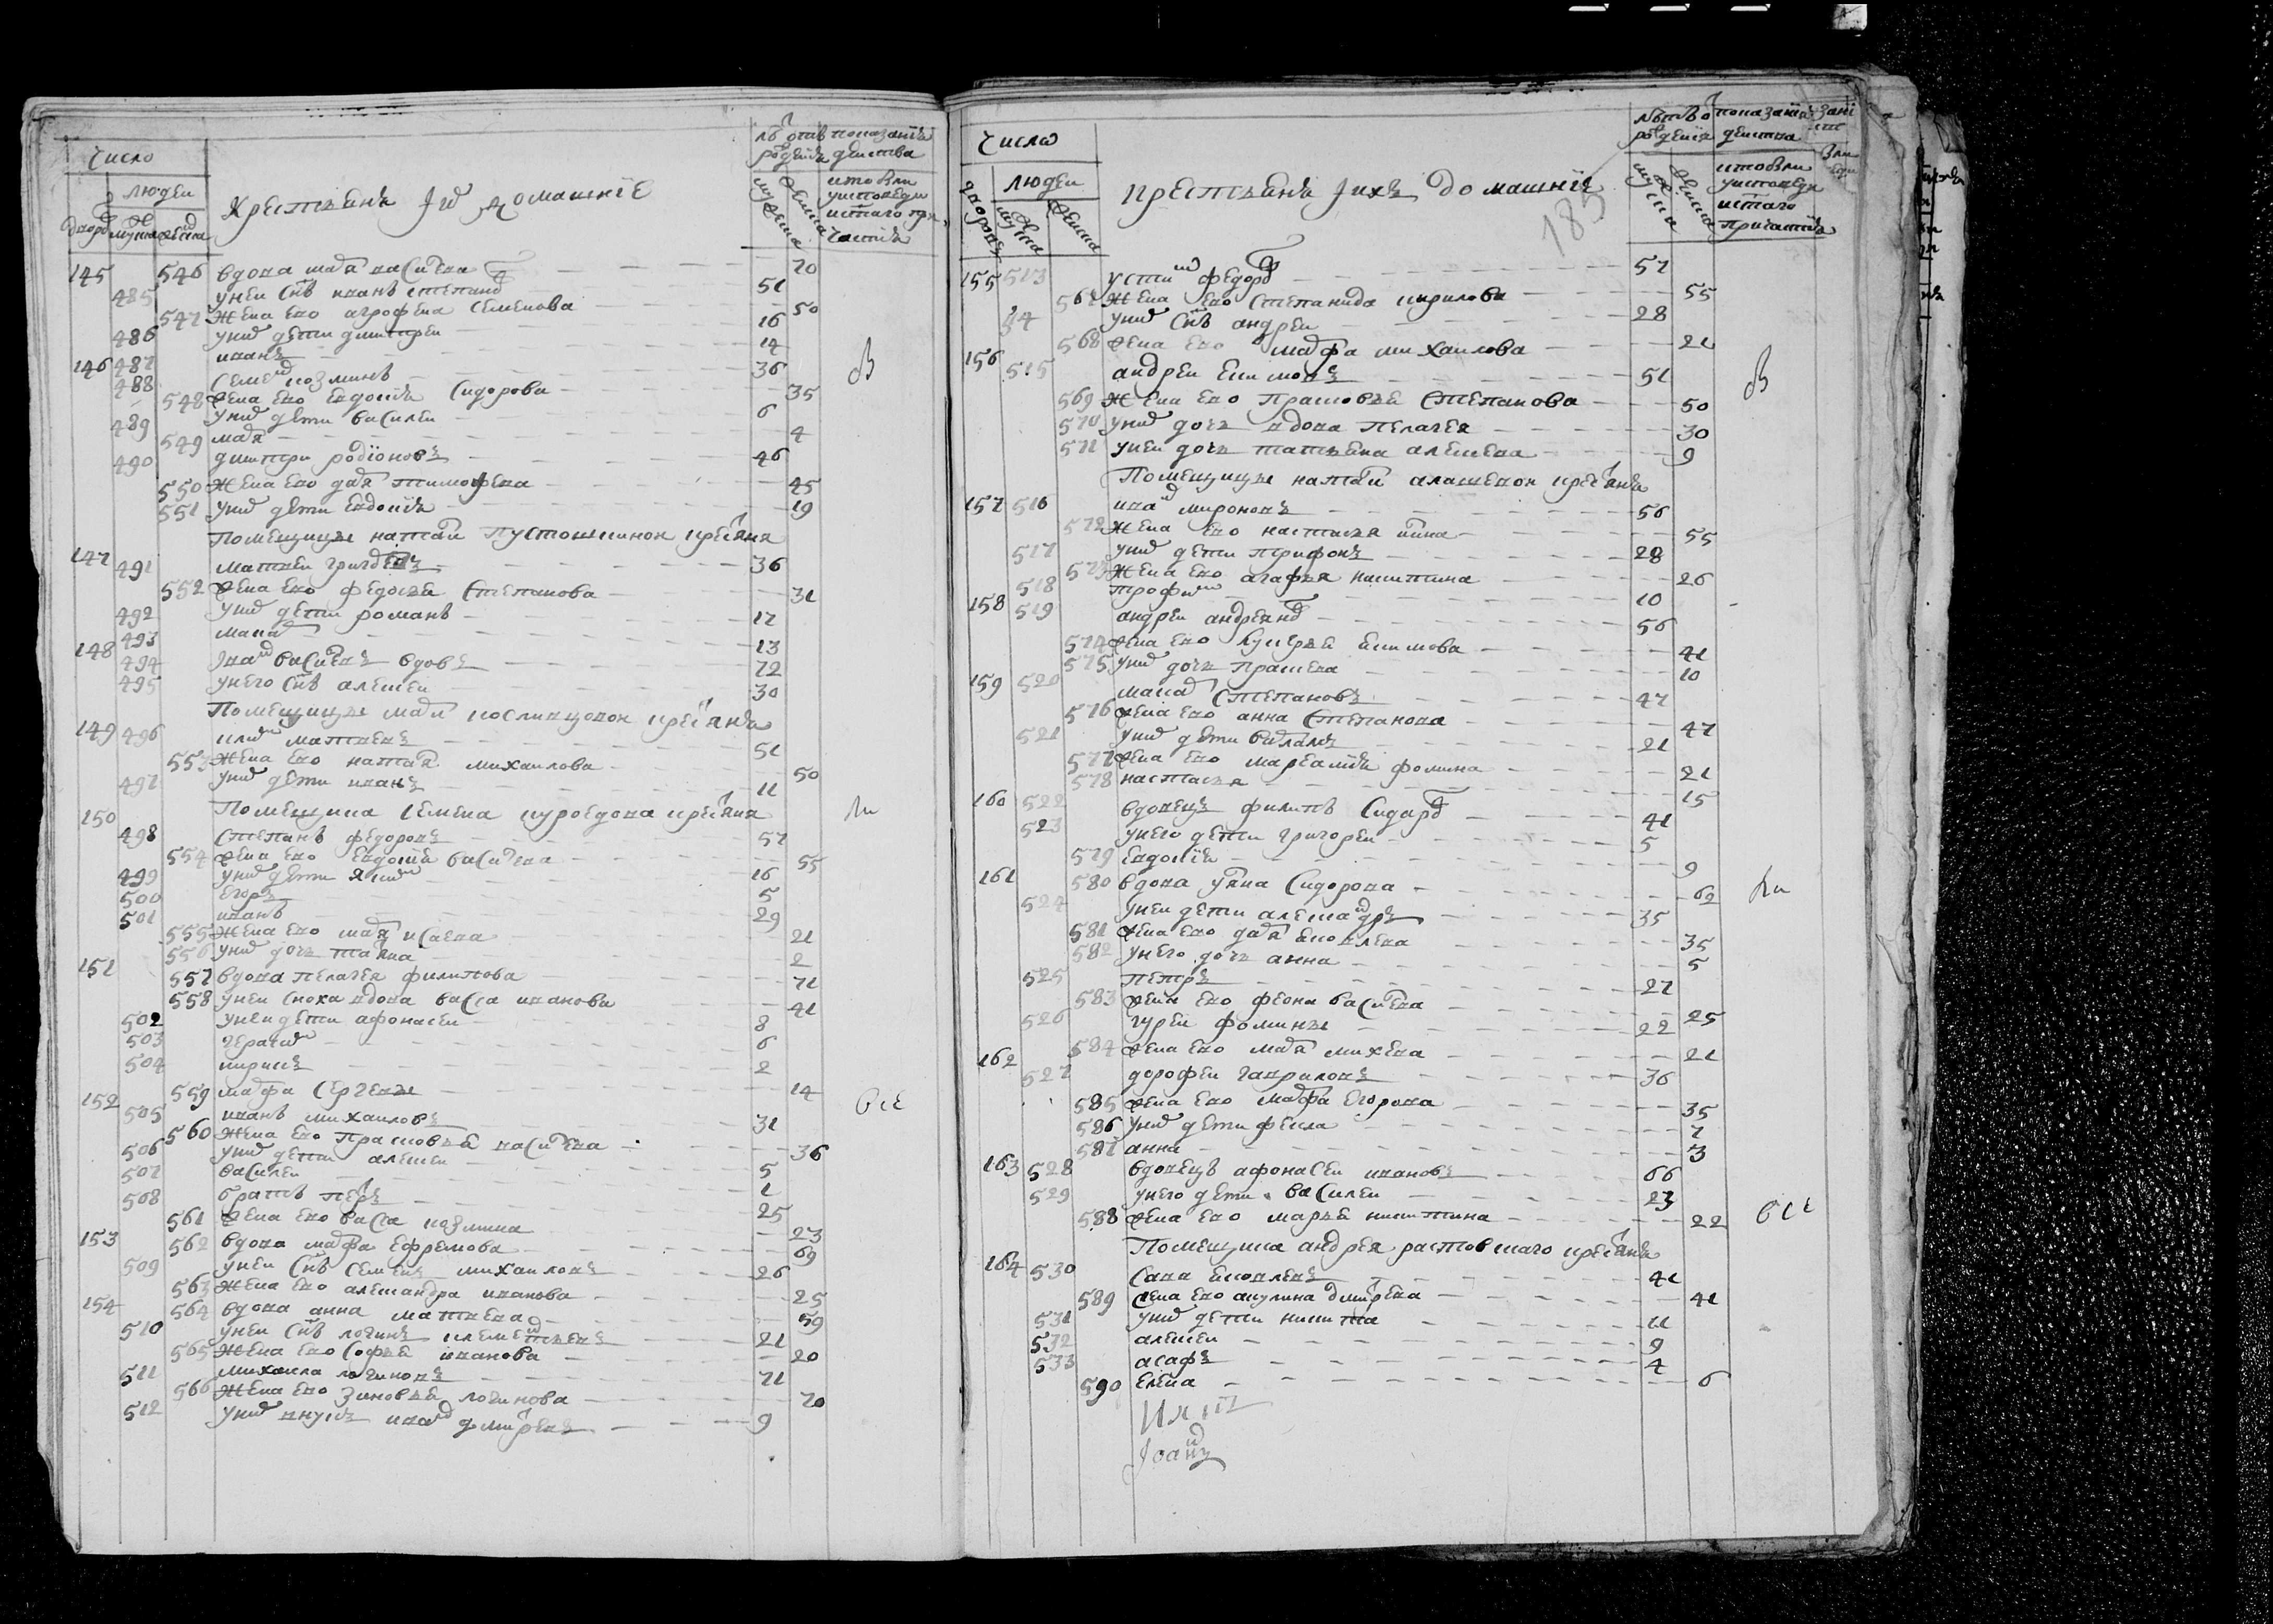 число
людеи
Крестьянъ и домашние
летъ от рождения
показание действа
кто были у исповеди и святаго причастия
145 546 вдова маря васильева 70
485 у неи снъ иванъ степанов 51
547 жена ево агрофена семенова 50
486 у них дети димитреи 16
487 иванъ 14
146 488 семен козминъ 36
548 жена ево евдокия сидорова 35
489 у них дети василеи 6
549 маря 4
490 димтри родионовъ 46
550 жена ево даря тимофева 45
551 у них дети евдокия 19
Помещицы натали пустошкинои крестяня
147 491 матвеи григоревъ 36
552 жена ево федосья степанова 31
492 у них дети романъ 17
493 макар 13
148 494 иван василевъ вдовъ 72
495 у него снъ алексеи 30
Помещицы мари косливцовои крестяня
149 496 клим матвевъ 51
553 жена ево наталя михаилова 50
497 у них дети иванъ 11
Помещика семена куроедова крестяня
150 498 степанъ федоровъ 57
554 жена ево евдокия василева 55
499 у них дети яким 16
500 егоръ 5
501 иванъ 29
555 жена ево маря исаева 21
556 у них дочь татяна 2
151 557 вдова пелагея филипова 71
558 у неи сноха вдова васса иванова 41
502 у неи дети афонасеи 8
503 герасим 6
504 кирикъ 2
559 марфа сергевы 14
152 505 иванъ михаиловъ 31
560 жена ево прасковья василева 36
506 у них дети алексеи 5
507 василеи 1
508 братъ петръ 25
561 жена ево васса козмина 23
153 562 вдова марфа ефремова 69
509 у неи снъ семенъ михаиловъ 26
563 жена ево александра иванова 25
154 564 вдова анна матвева 59
510 у неи снъ логинъ клементьевъ 21
565 жена ево софья иванова 20
511 михаила логиновъ 71
566 жена ево зиновья логинова 70
512 у них внукъ иван дмитревъ 9
в
ли
все
числа
людеи
дворовъ
мужеска
женска
крестьянъ и ихъ домашние
185
летъ от рождения
показание действа
кто были у исповеди и святаго причастия
155 513 устин федоров 57
567 жена ево степанида кирилова 55
514 у них снъ андреи 28
568 жена ево марфа михаилова 21
156 515 андреи екимовъ 51
569 жена ево прасковья степанова 50
570 у них дочь вдова пелагея 30
571 у неи дочь татьяна алексева 9
Помещицы натали алашевои крестяня
157 516 иван мироновъ 56
572 жена ево настасья 55
517 у них дети трифонъ 28
573 жена ево агафья никитина 26
518 трофим 10
158 519 андреи андреянов 56
574 жена ево екимова 41
575 у них дочь 10
159 520 макар степановъ 47
576 жена ево анна степанова 47
521 у них дети 21
577 жена ево фомина 21
578 настасья 15
160 522 вдовецъ филипъ сидоров 41
523 у него дети григореи 5
579 евдокия 9
161 580 вдова уляна сидорова 62
524 у неи дети александръ 35
581 жена ево даря яковлева 35
582 у него дочь анна 5
525 петръ 27
583 жена ево феона василева 25
526 гуреи фоминъ 22
584 жена ево маря михева 21
162 527 дорофеи гавриловъ 36
585 жена ево марфа егорова 35
586 у них дети фекла 7
587 анна 3
163 528 вдовецъ афонасеи ивановъ 66
529 у него дети василеи 23
588 жена ево марья никитина 22
Помещика андрея растовскаго крестяня
164 530 сава яковлевъ 41
589 жена ево акулина дмитрева 41
531 у них дети никита 11
532 алексеи 9
533 асафъ 4
590 елена 6
Иоаннъ
в
ли
все